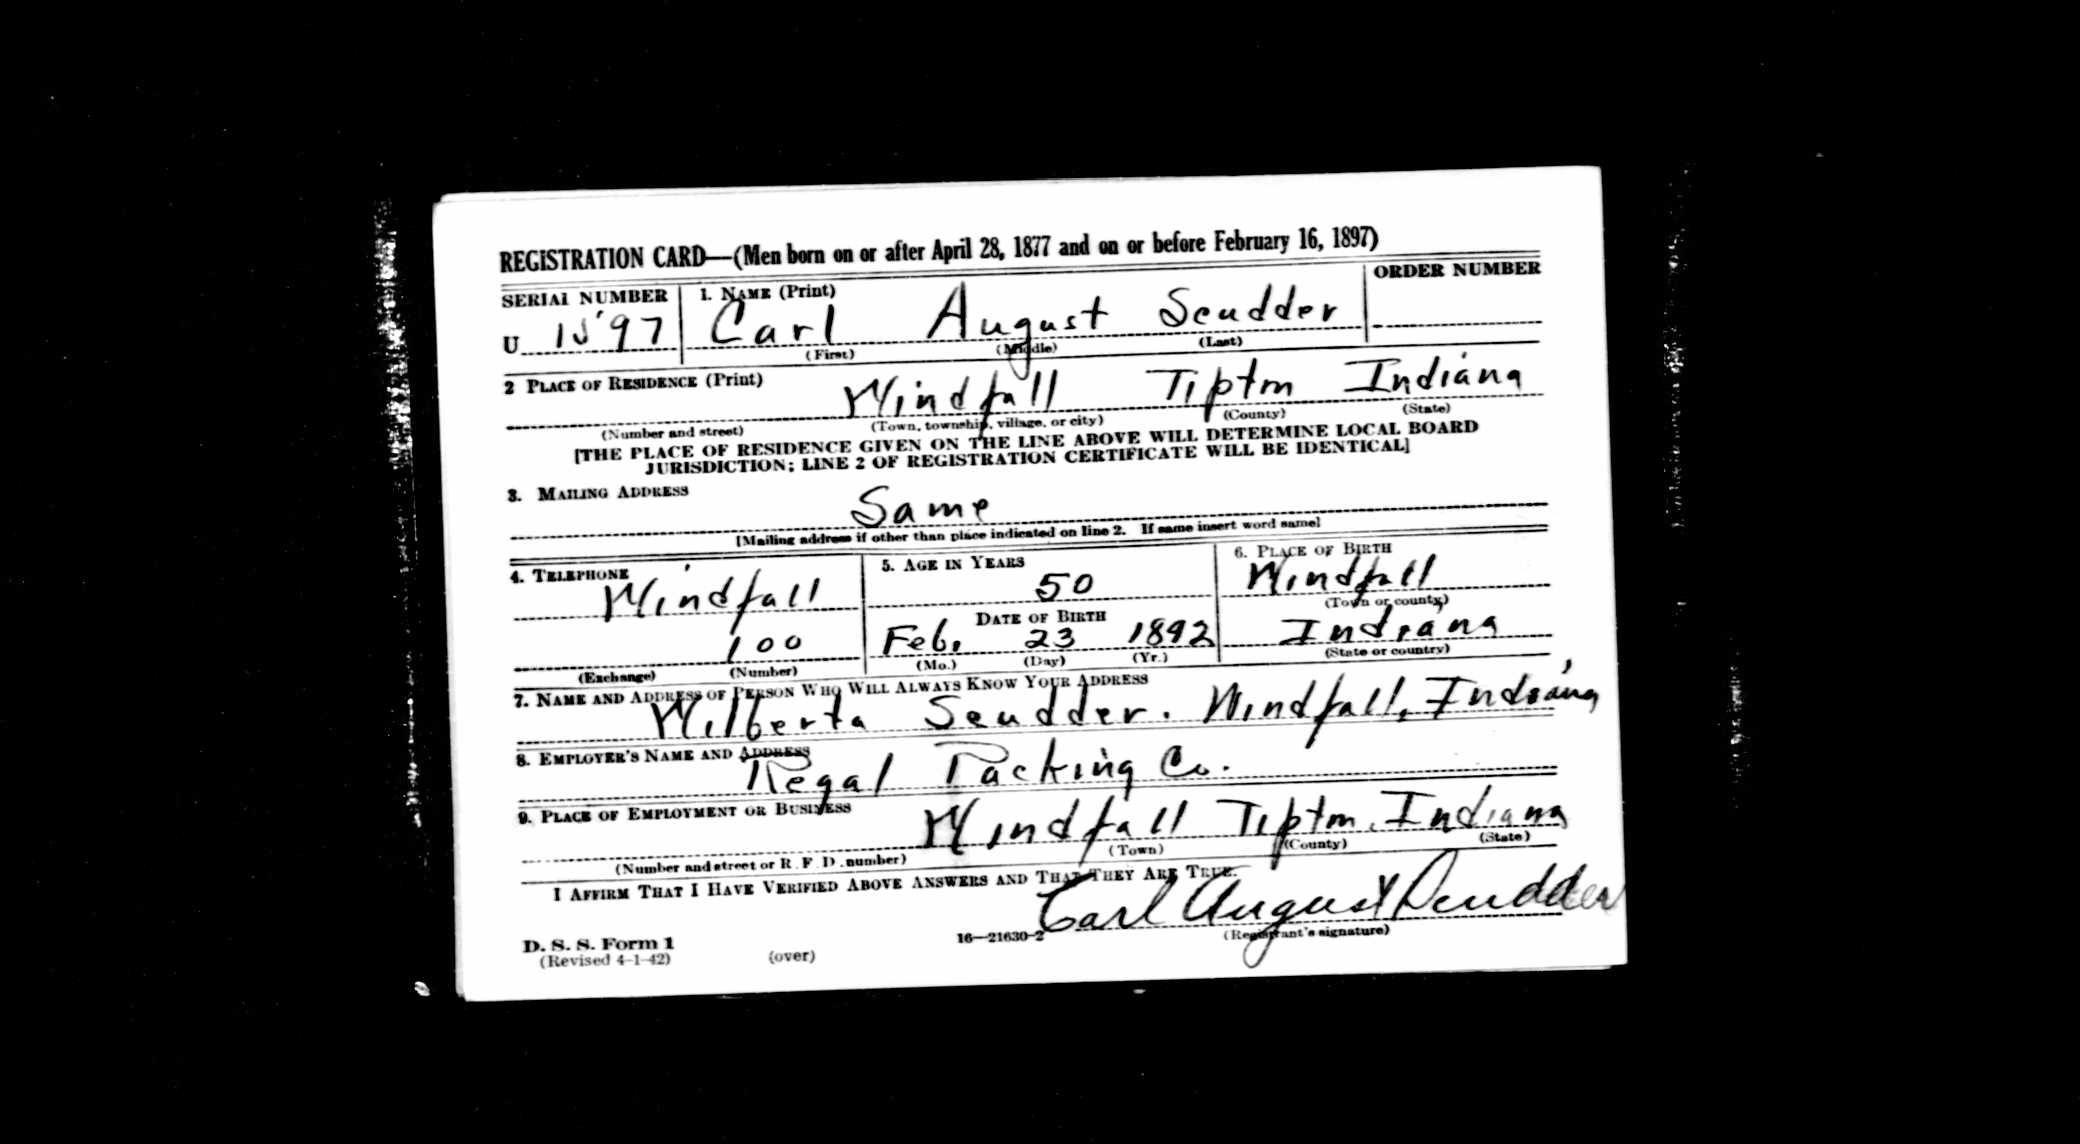 REGISTRATION CARD—(Men born on or after April 28, 1877 and on or before February 16, 1897)
SERIAL NUMBER 1. NAME (Print) ORDER NUMBER
U 1597 Carl August Scudder
(First) (Middle) (Last)
2 PLACE OF RESIDENCE (Print)
Windfall Tipton Indiana
(Number and street) (Town, township, village, or city) (County) (State)
[THE PLACE OF RESIDENCE GIVEN ON THE LINE ABOVE WILL DETERMINE LOCAL BOARD
JURISDICTION; LINE 2 OF REGISTRATION CERTIFICATE WILL BE IDENTICAL]
3. MAILING ADDRESS
Same
[Mailing address if other than place indicated on line 2. If same insert word same]
4. TELEPHONE 5. AGE IN YEARS 6. PLACE OF BIRTH
Windfall 50 Windfall
DATE OF BIRTH (Town or county)
100 Feb. 23 1892 Indiana
(Exchange) (Number) (Mo.) (Day) (Yr.) (State or country)
7. NAME AND ADDRESS OF PERSON WHO WILL ALWAYS KNOW YOUR ADDRESS
Wilberta Scudder. Windfall, Indiana
8. EMPLOYER'S NAME AND ADDRESS
Regal Packing Co.
9. PLACE OF EMPLOYMENT OR BUSINESS
Windfall Tipton, Indiana
(Number and street or R. F. D. number) (Town) (County) (State)
I AFFIRM THAT I HAVE VERIFIED ABOVE ANSWERS AND THAT THEY ARE TRUE.
Carl August Scudder
D. S. S. Form 1 16—21630-2 (Registrant's signature)
(Revised 4-1-42) (over)